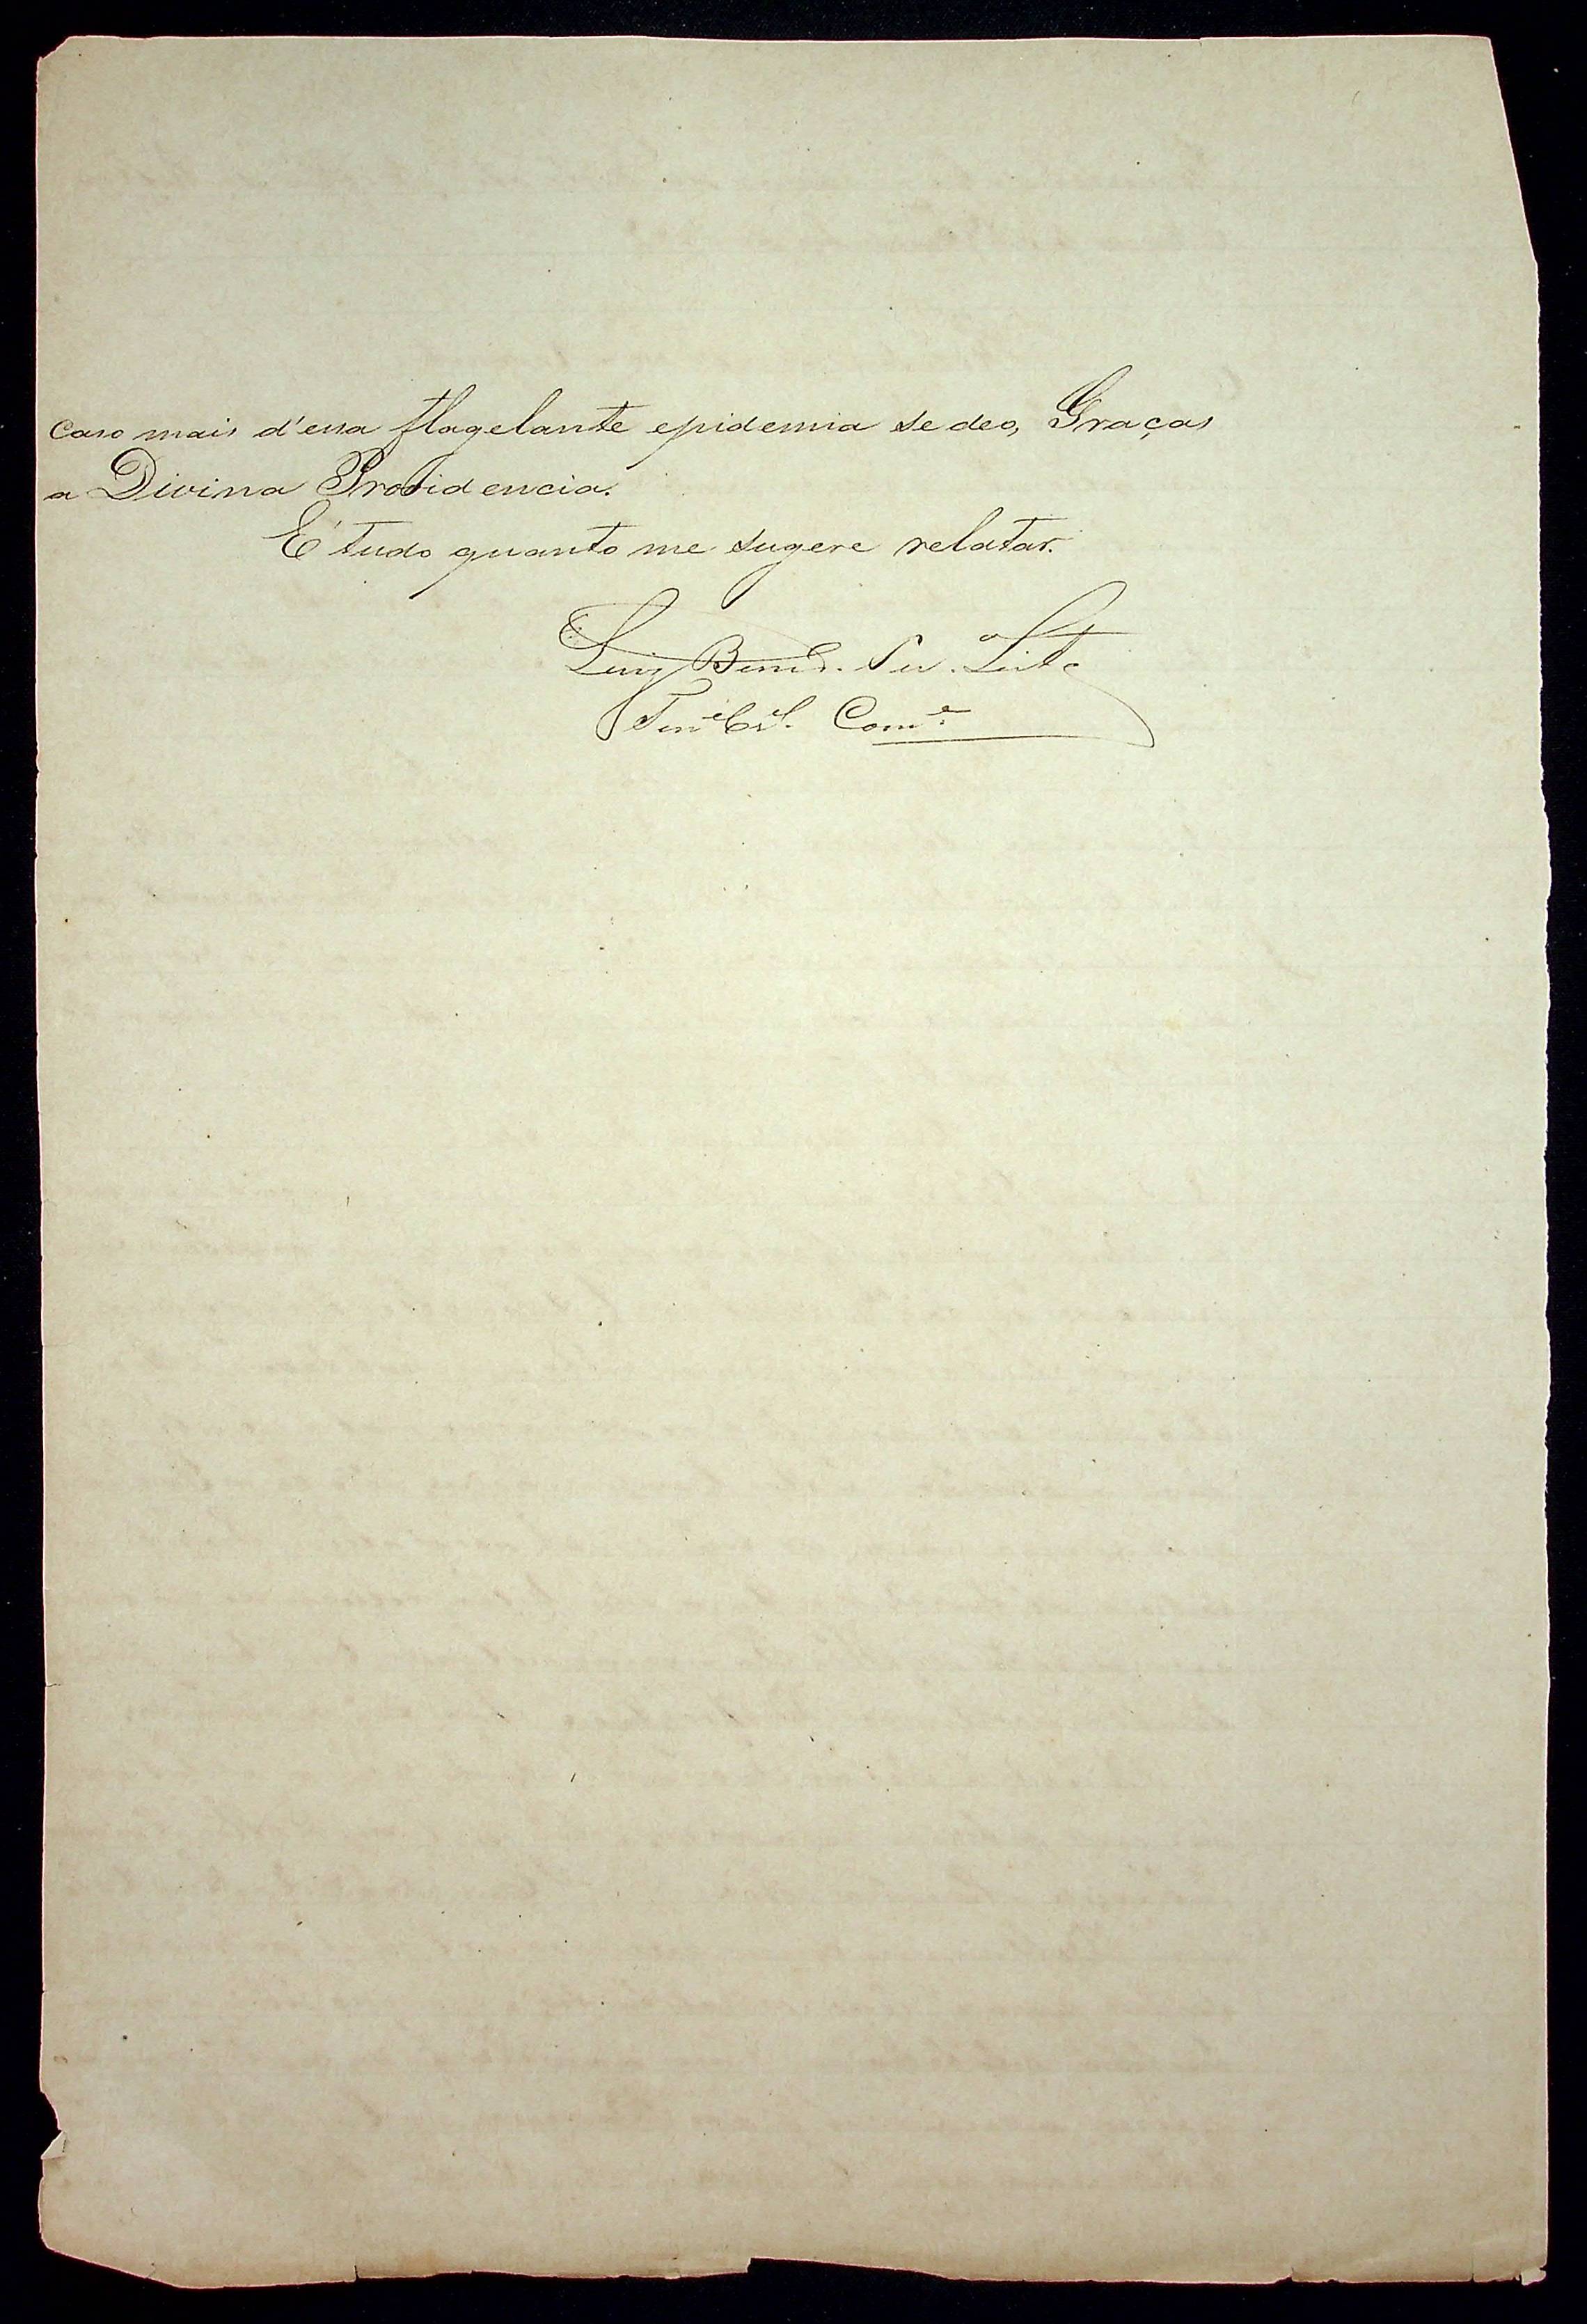 caso mais d'essa flagelante epidemia se deo, Graças
a Divina Providencia.
E' tudo quanto me sugere relatar.
Luiz Bened. Per. Leite
Ten.e C.el Com.e